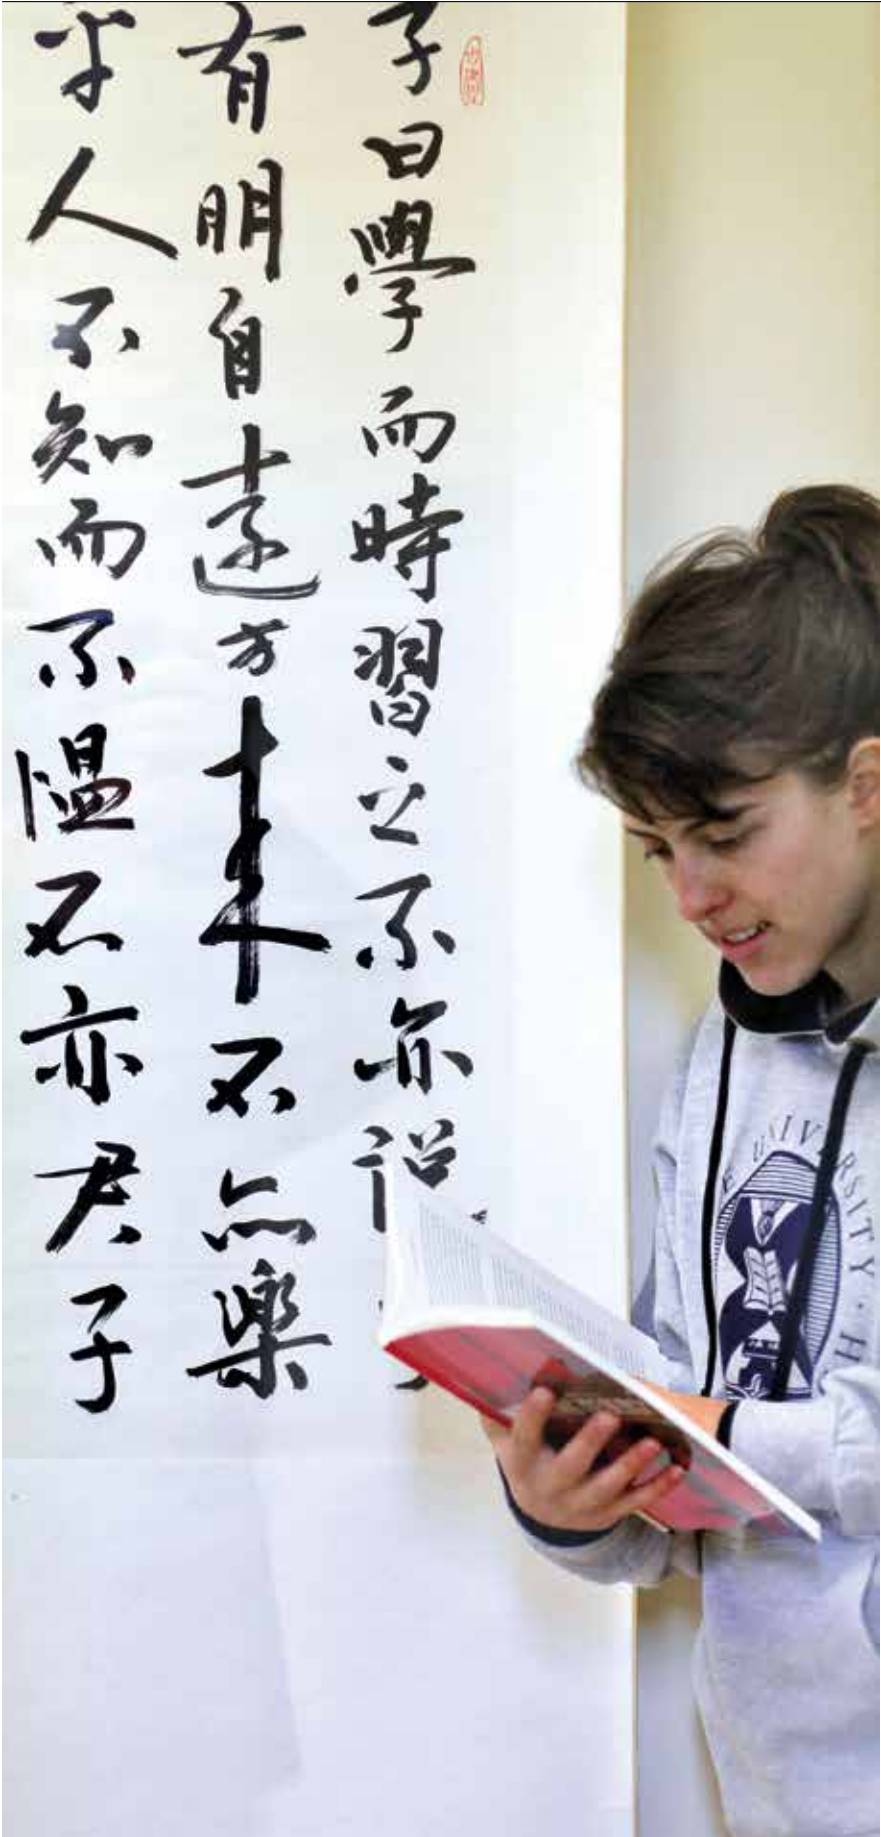 子曰學而時習之不亦說
有朋自遠方来不亦樂
乎人不知而不愠不亦君子
UNIVERSITY